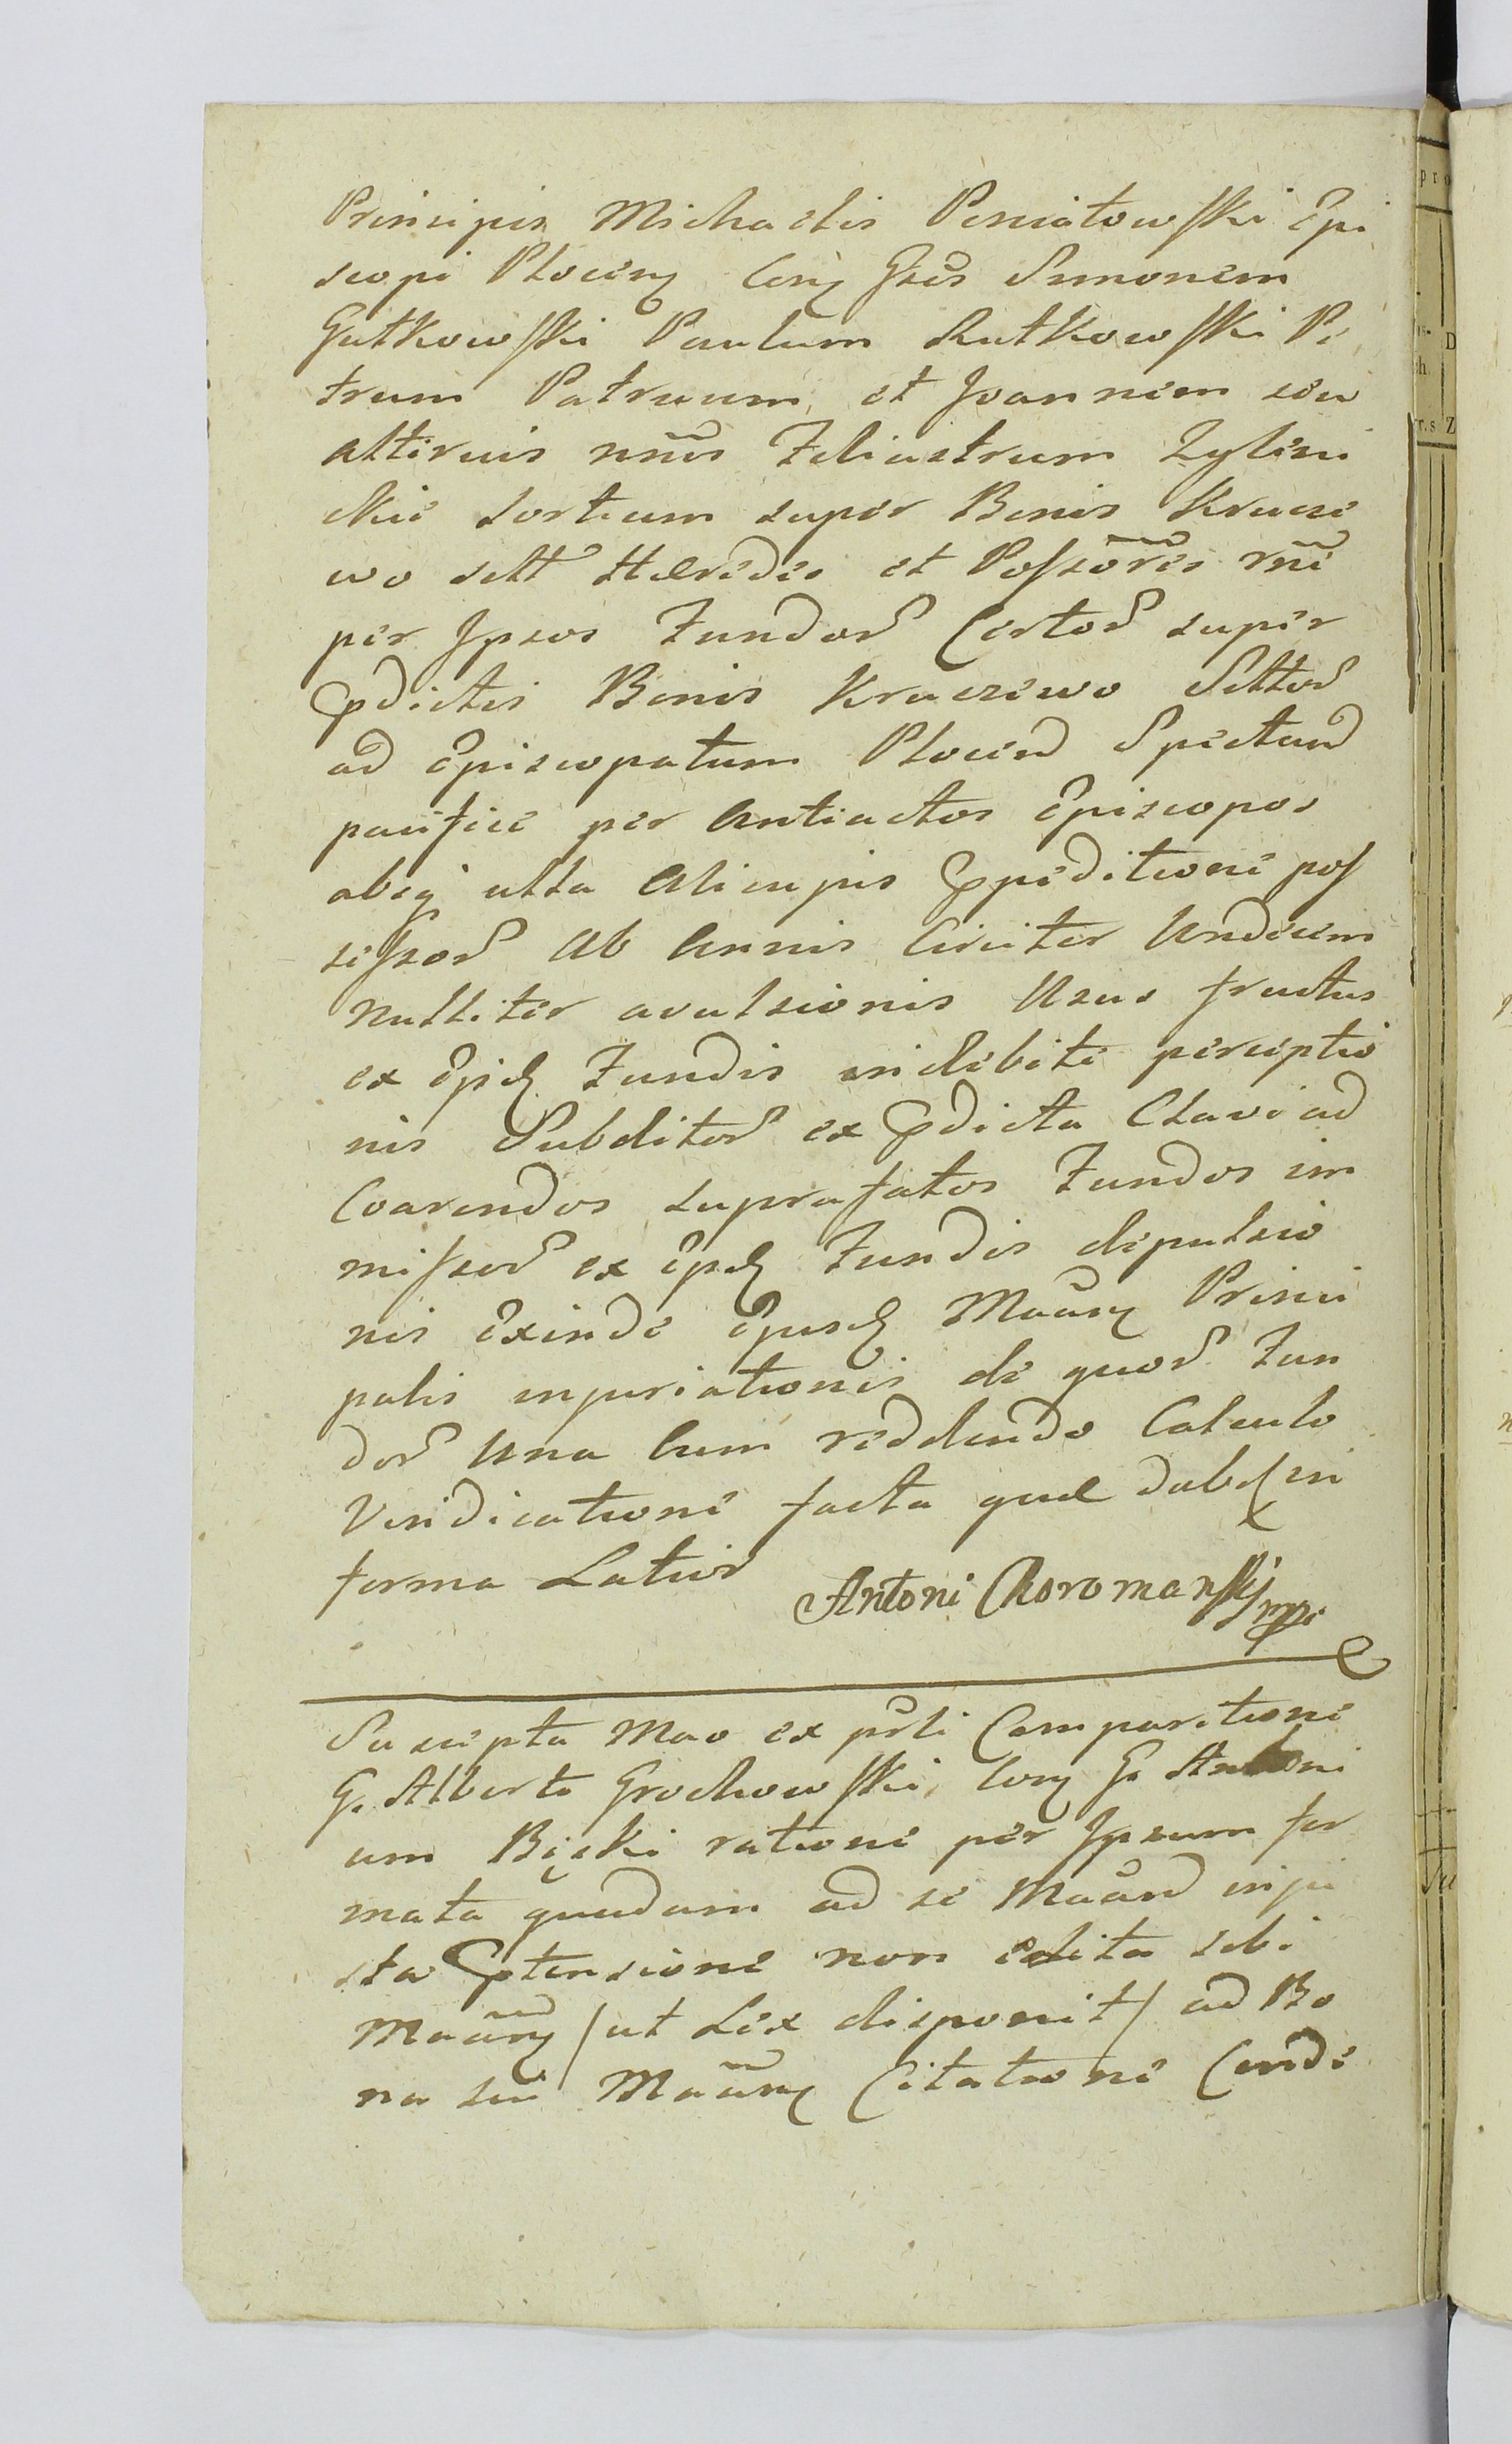 Principis Michaelis Poniatowski Epi
scopi Plocen Con Gsos Simonem
Gutkowski Paulum Rutkowski Pe
trum Patruum et Joannem seu
alterius nnis Filiastrum Zylins
ckie Sortium super Bonis Krucze
wo sitt Hæredes et Possores rne
per Ipsos Fundor Certor super
pdictis Bonis Kruczewo Sittor
ad Episcopatum Plocen Spectan
pacifice per Anteactos Episcopos
absq ulla Alicujus Ppeditione pos
sessor Ab Annis Circiter Undecim
nulliter avulsionis Usus fructus
ex Epis Fundis indebite perceptio
nis Subditor ex pdicta Clavi ad
Coarendos suprafatos Fundos im
missor ex epis Fundis depulsio
nis Exinde Ejusd Maan Princi
palis injuriationis de quor Fun
dor Una Cum reddendo Calculo
Vindicatione facta quæ dabit in
forma Latior Antoni Choromanski mpr
Suscepta Mao ex psti Comparitione
G. Alberti Grochowski, Con G. Antoni
um Bięski ratione per Ipsum for
mata quadam ad se Maan inju
sta Ptensione non edita sibi
Maan /ut Lex disponit/ ad Bo
na sui Maan Citatione Conde